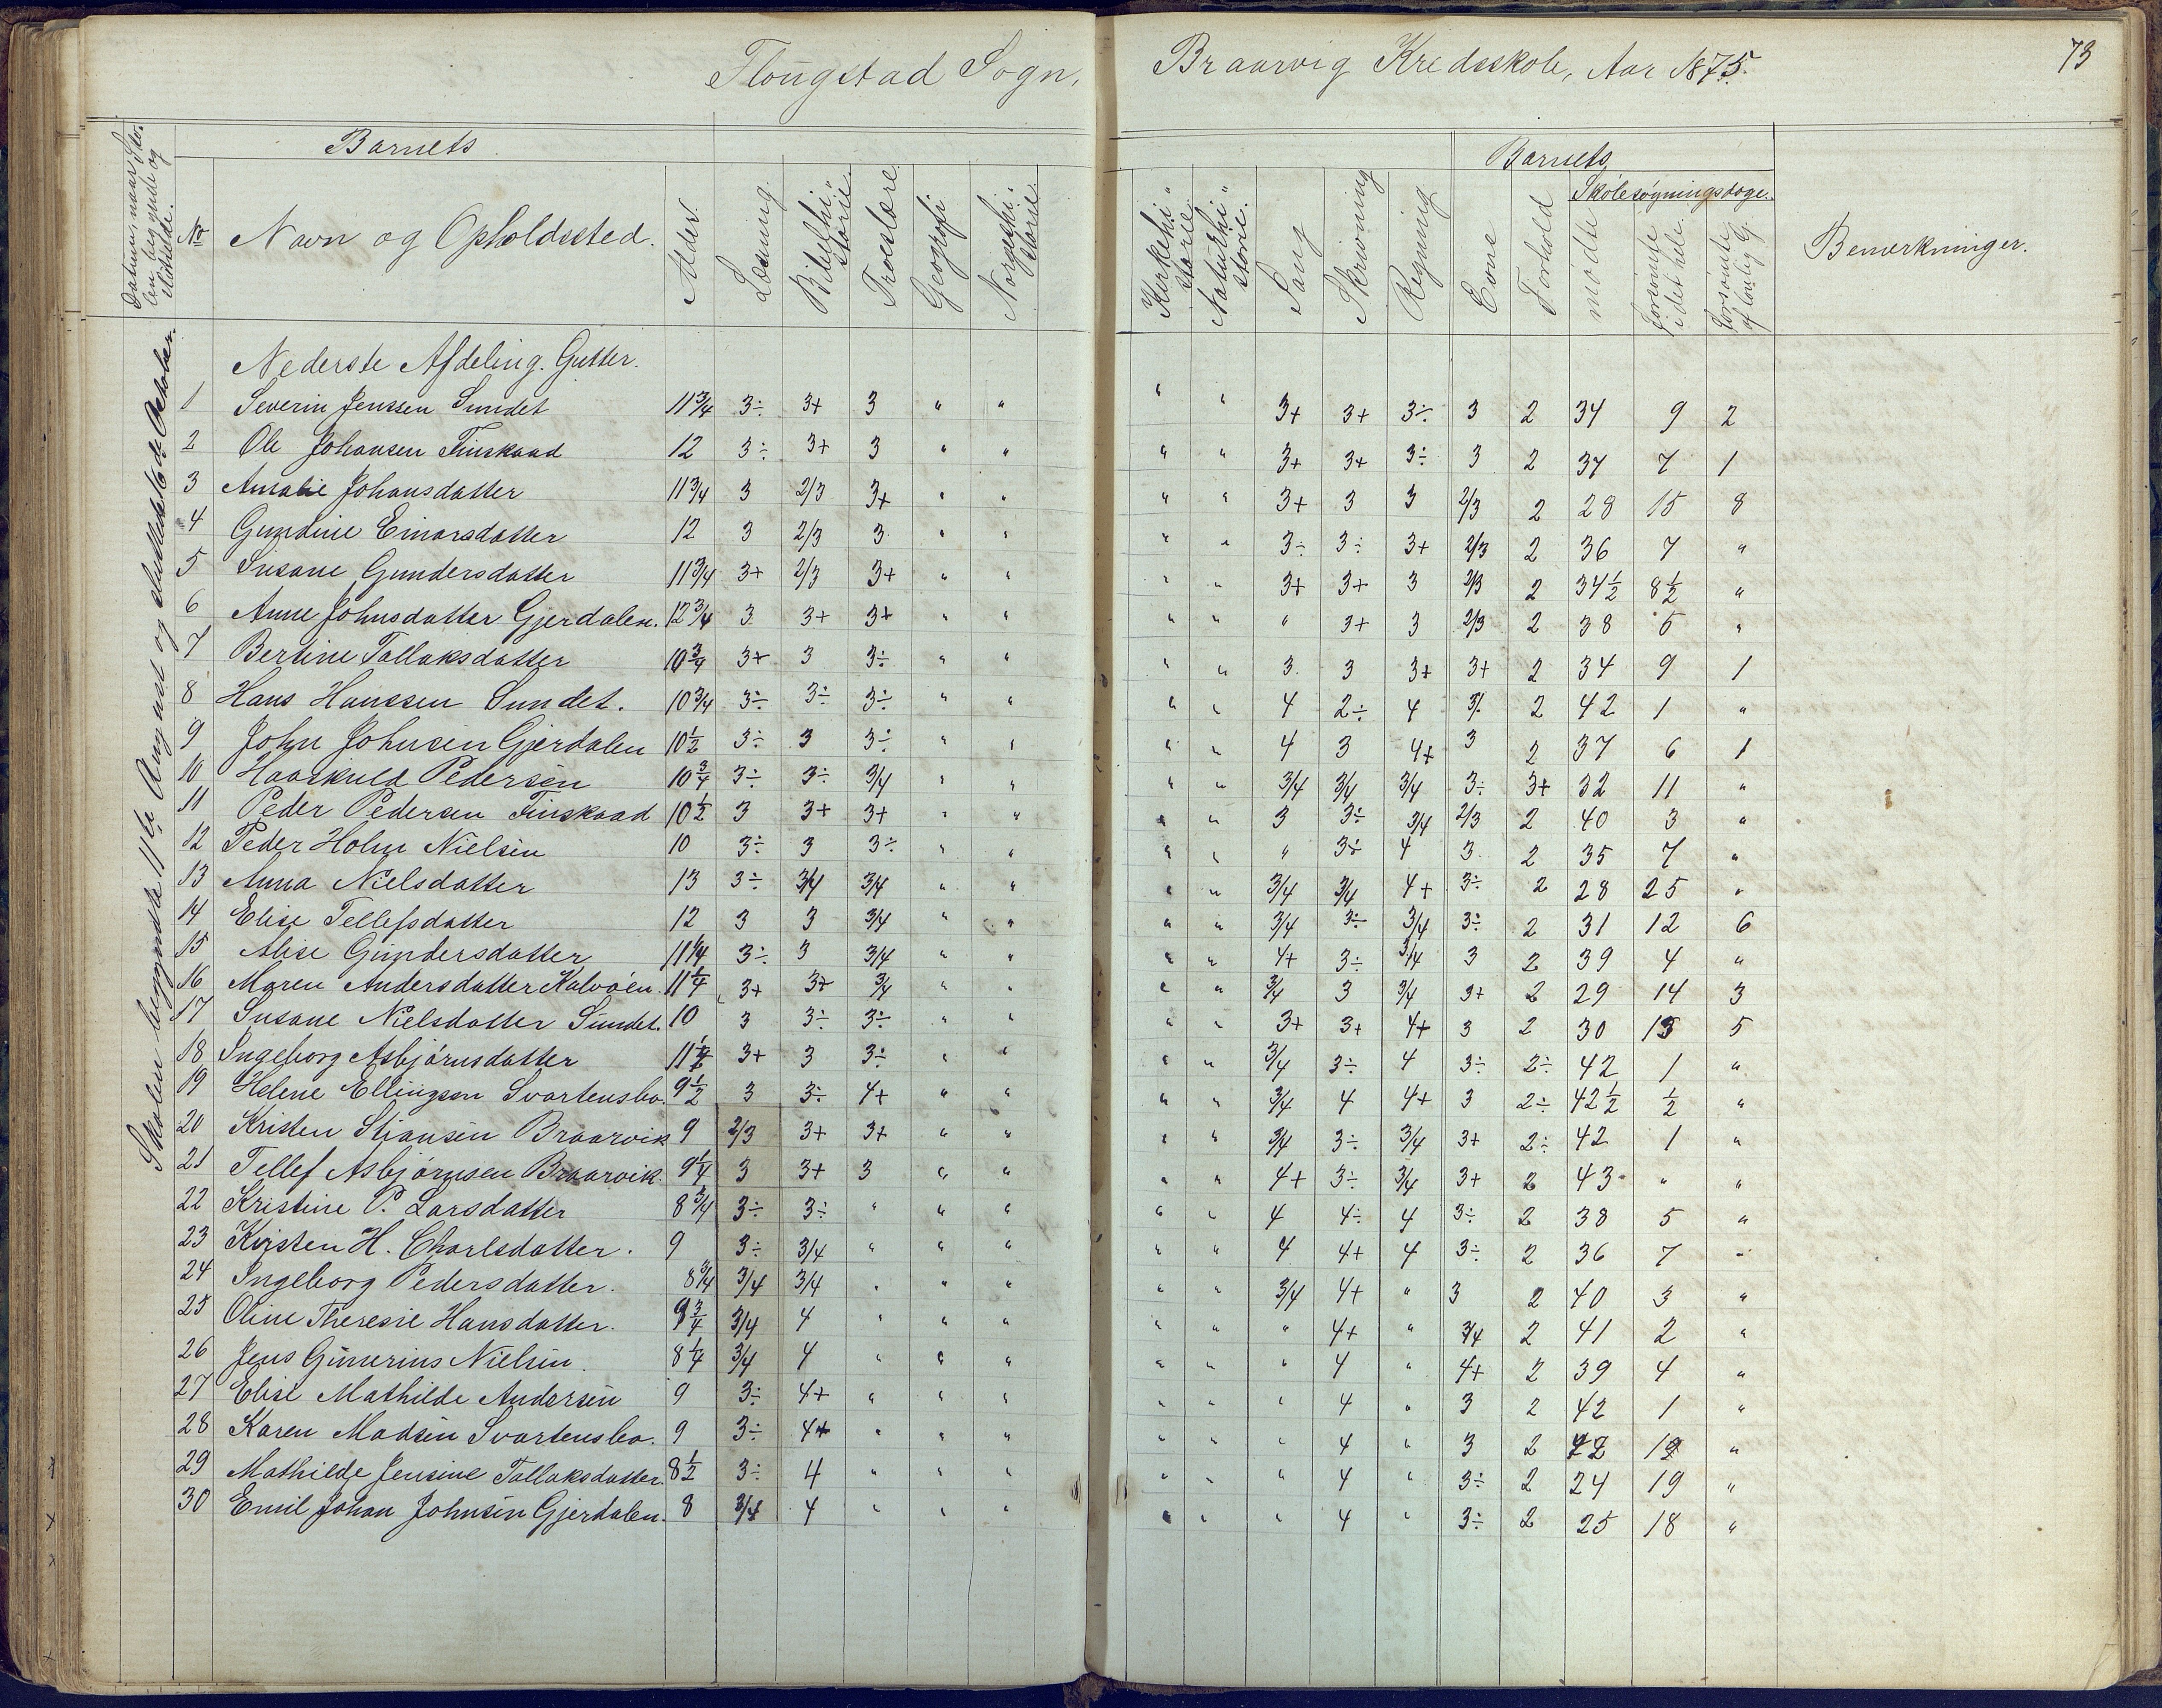 Flougstad Sogn, Braarvig Kredsskole, Aar 1875. 73
Datum, naar Sko-
len begyndte og
sluttede.
Barnets
No
Navn og Opholdssted.
Alder.
Læsning.
Bibelhi-
storie.
Troeslære
Geografi
Norgeshi-
storie
Kirkehi-
storie
Naturhi-
storie.
Sang
Skrivning
Regning
Barnets
Evne
Forhold
Skolesøgningsdage.
mødte
forsømte
i det hele.
forsømte
af lovlig G.
Bemærkninger.
Skolen begyndte 11te August og sluttede 16de October.
Nederste Afdeling. Gutter.
1 Severin Jenssen Sundet 11 3/4 3÷ 3+ 3 " " " " 3+ 3+ 3÷ 3 2 34 9 2
2 Ole Johansen Finskaad 12 3÷ 3+ 3 " " " " 3+ 3+ 3÷ 3 2 37 7 1
3 Amalie Johansdatter 11 3/4 3 2/3 3+ " " " " 3+ 3 3 2/3 2 28 15 8
4 Gundine Einarsdatter 12 3 2/3 3 " " " " 3÷ 3÷ 3+ 2/3 2 36 7 "
5 Susane Gundersdatter 11 3/4 3+ 2/3 3+ " " " " 3+ 3+ 3 2/3 2 34 1/2 8 1/2 "
6 Anne Johnsdatter Gjerdalen. 12 3/4 3 3+ 3+ " " " " " 3+ 3 2/3 2 38 5 "
7 Bertine Tallaksdatter 10 3/4 3+ 3 3÷ " " " " 3 3 3+ 3+ 2 34 9 1
8 Hans Hanssen Sundet. 10 3/4 3÷ 3÷ 3÷ " " " " 4 2÷ 4 3÷ 2 42 1 "
9 John Johnsen Gjerdalen 10 1/2 3÷ 3 3÷ " " " " 4 3 4+ 3 2 37 6 1
10 Haaskuld Pedersen 10 3/4 3÷ 3÷ 3/4 " " " " 3/4 3/4 3/4 3÷ 3+ 32 11 "
11 Peder Pedersen Finskaad 10 1/2 3 3+ 3+ " " " " 3 3÷ 3/4 2/3 2 40 3 "
12 Peder Holm Nielsen 10 3÷ 3 3÷ " " " " " 3÷ 4 3 2 35 7 "
13 Anna Nielsdatter 13 3÷ 3/4 3/4 " " " " 3/4 3/4 4+ 3÷ 2 28 25 "
14 Elise Tellefsdatter 12 3 3 3/4 " " " " 3/4 3÷ 3/4 3÷ 2 31 12 6
15 Alise Gundersdatter 11 1/4 3÷ 3 3/4 " " " " 4+ 3÷ 3/4 3 2 39 4 "
16 Maren Andersdatter Kalvøen. 11 1/4 3+ 3+ 3/4 " " " " 3/4 3 3/4 3+ 2 29 14 3
17 Susane Nielsdatter Sundet. 10 3 3÷ 3÷ " " " " 3+ 3+ 4+ 3 2 30 13 5
18 Ingeborg Asbjørnsdatter 11 1/2 3+ 3 3÷ " " " " 3/4 3÷ 4 3÷ 2÷ 42 1 "
19 Helene Ellingsen Svartensbo. 9 1/2 3 3÷ 4+ " " " " 3/4 4 4+ 3 2÷ 42 1/2 1/2 "
20 Kristen Stiansen Braarvik 9 2/3 3+ 3+ " " " " 3/4 3÷ 3/4 3+ 2÷ 42 1 "
21 Tellef Asbjørnsen Braarvik. 9 1/4 3 3+ 3 " " " " 4+ 3÷ 3/4 3+ 2 43 " "
22 Kristine P. Larsdatter 8 3/4 3÷ 3÷ " " " " " 4 4÷ 4 3÷ 2 38 5 "
23 Kirsten H. Charlsdatter. 9 3÷ 3/4 " " " " " 4 4+ 4 3÷ 2 36 7 "
24 Ingeborg Pedersdatter. 8 3/4 3/4 3/4 " " " " " 3/4 4+ " 3 2 40 3 "
25 Oline Theresie Hansdatter. 9 3/4 3/4 4 " " " " " " 4+ " 3/4 2 41 2 "
26 Jens Gunerius Nielsen. 8 1/4 3/4 4 " " " " " " 4 " 4+ 2 39 4 "
27 Elise Mathilde Andersen 9 3÷ 4+ " " " " " " 4 " 3 2 42 1 "
28 Karen Madsen Svartensbo. 9 3÷ 4+ " " " " " " 4 " 3 2 12 "
29 Mathilde Jensine Tallaksdatter. 8 1/2 3÷ 4 " " " " " " 4 " 3÷ 2 24 19 "
30 Emil Johan Johnsen Gjerdalen. 8 3/4 4 " " " " " " 4 " 3÷ 2 25 18 "